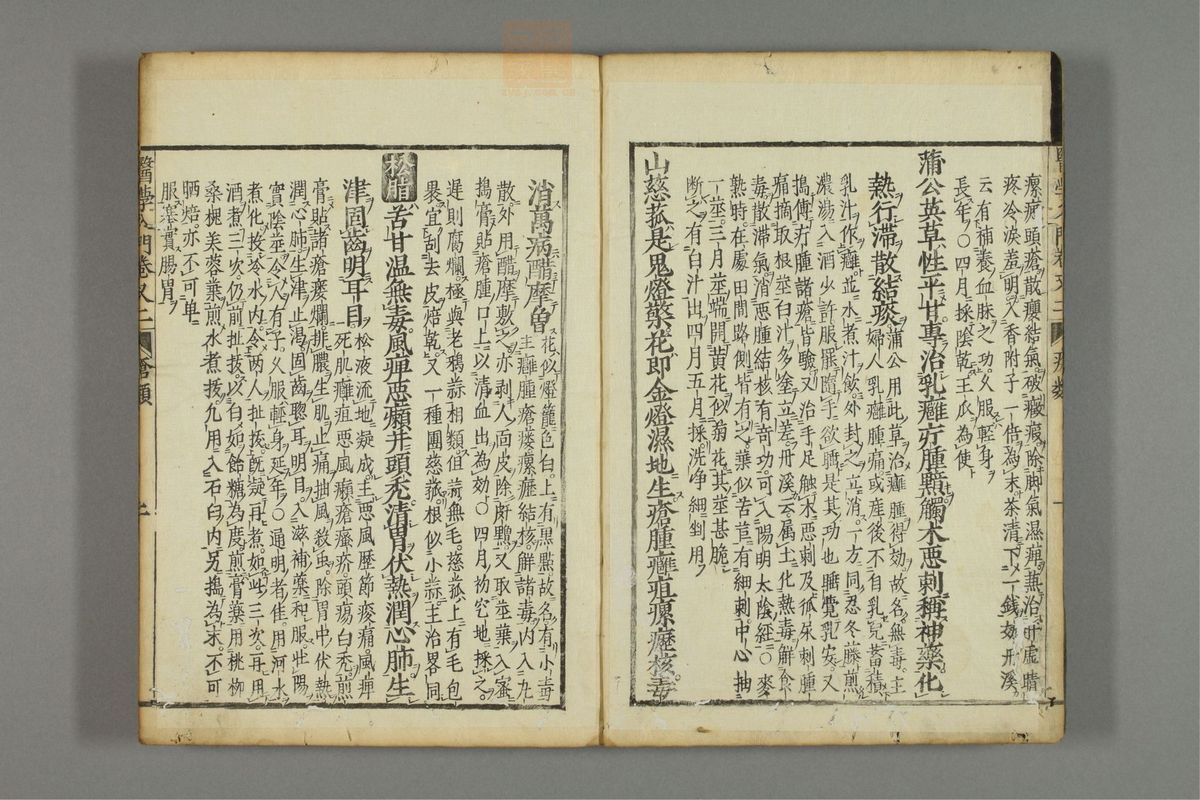 瘰癧頭瘡散癭結氣破癥瘕除脚氣濕痺熱治肝虛睛
疼冷淚羞明入香附子一倍為末茶清下一錢如丹溪
云有補養血脉之功久服輕身
長年○四月採陰乾王瓜為使
蒲公英草性平甘專治乳癰疔腫黯觸木惡刺稱神藥化
熱行滯散結痰
蒲公用此草治癰腫得効故名無毒主
婦人乳癰腫痛或産後不自乳兒蓄積
乳汁作癰並水煮汁飲外封之立消一方同忍冬藤煎
濃湯入酒少許服罷隨手欲睡是其功也睡覺乳安又
搗傅疔腫諸瘡皆驗又治手足觸木惡刺及狐尿刺腫
痛摘取根莖白汁多塗立差丹溪云属土化熱毒解食
毒散滯氣消惡腫結核有奇功可入陽明太陰經○麥
熟時在處田間路側皆有之葉似苦苣有細刺中心抽
一莖三月莖端開黄花似菊花其莖甚脆
斷之有白汁出四月五月採洗净細剉用
山慈菰是鬼燈檠花即金燈濕地生瘡腫癰疽瘰癧核毒
消萬病醋摩曾
花似燈籠色白上有黒點故名有小毒
主癰腫瘡瘻瘰癧結核解諸毒内入九
散外用醋摩敷之亦剥人面皮除皯䵳又取莖葉入蜜
搗膏貼瘡腫口上以清血出為効○四月初空地採之
遲則腐爛極與老鴉蒜相類但蒜無毛慈菰上有毛包
褁宜刮去皮焙乾又一種團慈菰根似小蒜主治畧同
松脂 苦甘温無毒風痺惡癩并頭秃清胃伏熱潤心肺生
津固齒明耳目
松液流地凝成主惡風歷節痠痛風痺
死肌癰疽惡風癩瘡瘙疥頭瘍白秃煎
膏貼諸瘡膿爛排膿生肌止痛抽風殺虫除胃中伏熱
潤心肺生津止渴固齒聰耳明目入滋補藥和服壯陽
實陰莖令人有子久服輕身延年○通明者佳用河水
煮化投冷水内令两人扯拔既凝再煮如此三次再用
酒煮三次仍前扯拔以白如飴糖為度煎膏藥用桃柳
桑槐芙蓉葉煎水煮拔九用入石臼内另搗為末不可
晒焙亦不可单
服塞實腸胃
醫學入門卷又二 瘡類 上